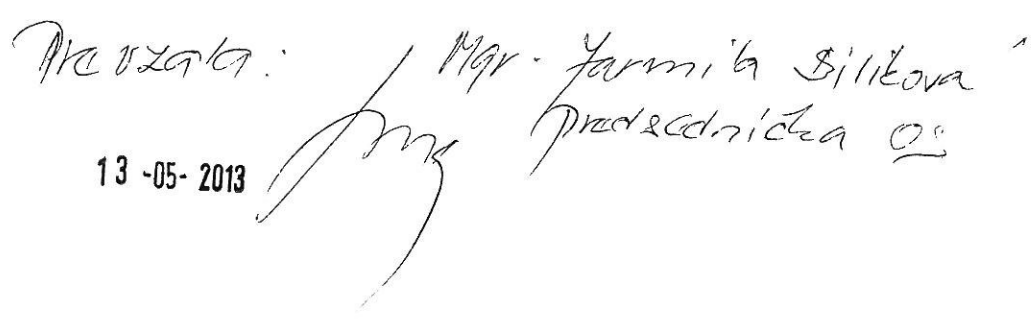 Prevzala: Mgr. Jarmila Bilikova
predsedníčka OS
13 -05- 2013